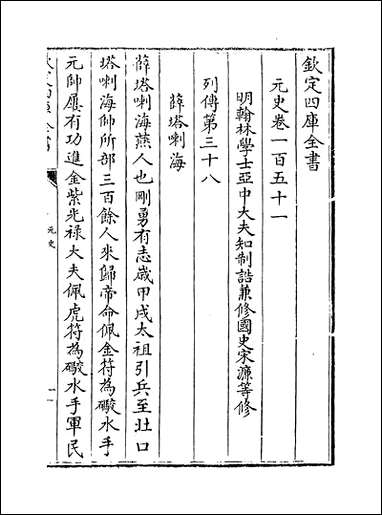 欽定四庫全書
元史卷一百五十一
明翰林學士亞中大夫知制誥兼修國史宋濂等修
列傳第三十八
薛塔喇海
薛塔喇海燕人也剛勇有志歲甲戌太祖引兵至北口
塔喇海帥所部三百餘人來歸帝命佩金符為礮水手
元帥屢有功進金紫光禄大夫佩虎符為礮水手軍民
元史
一